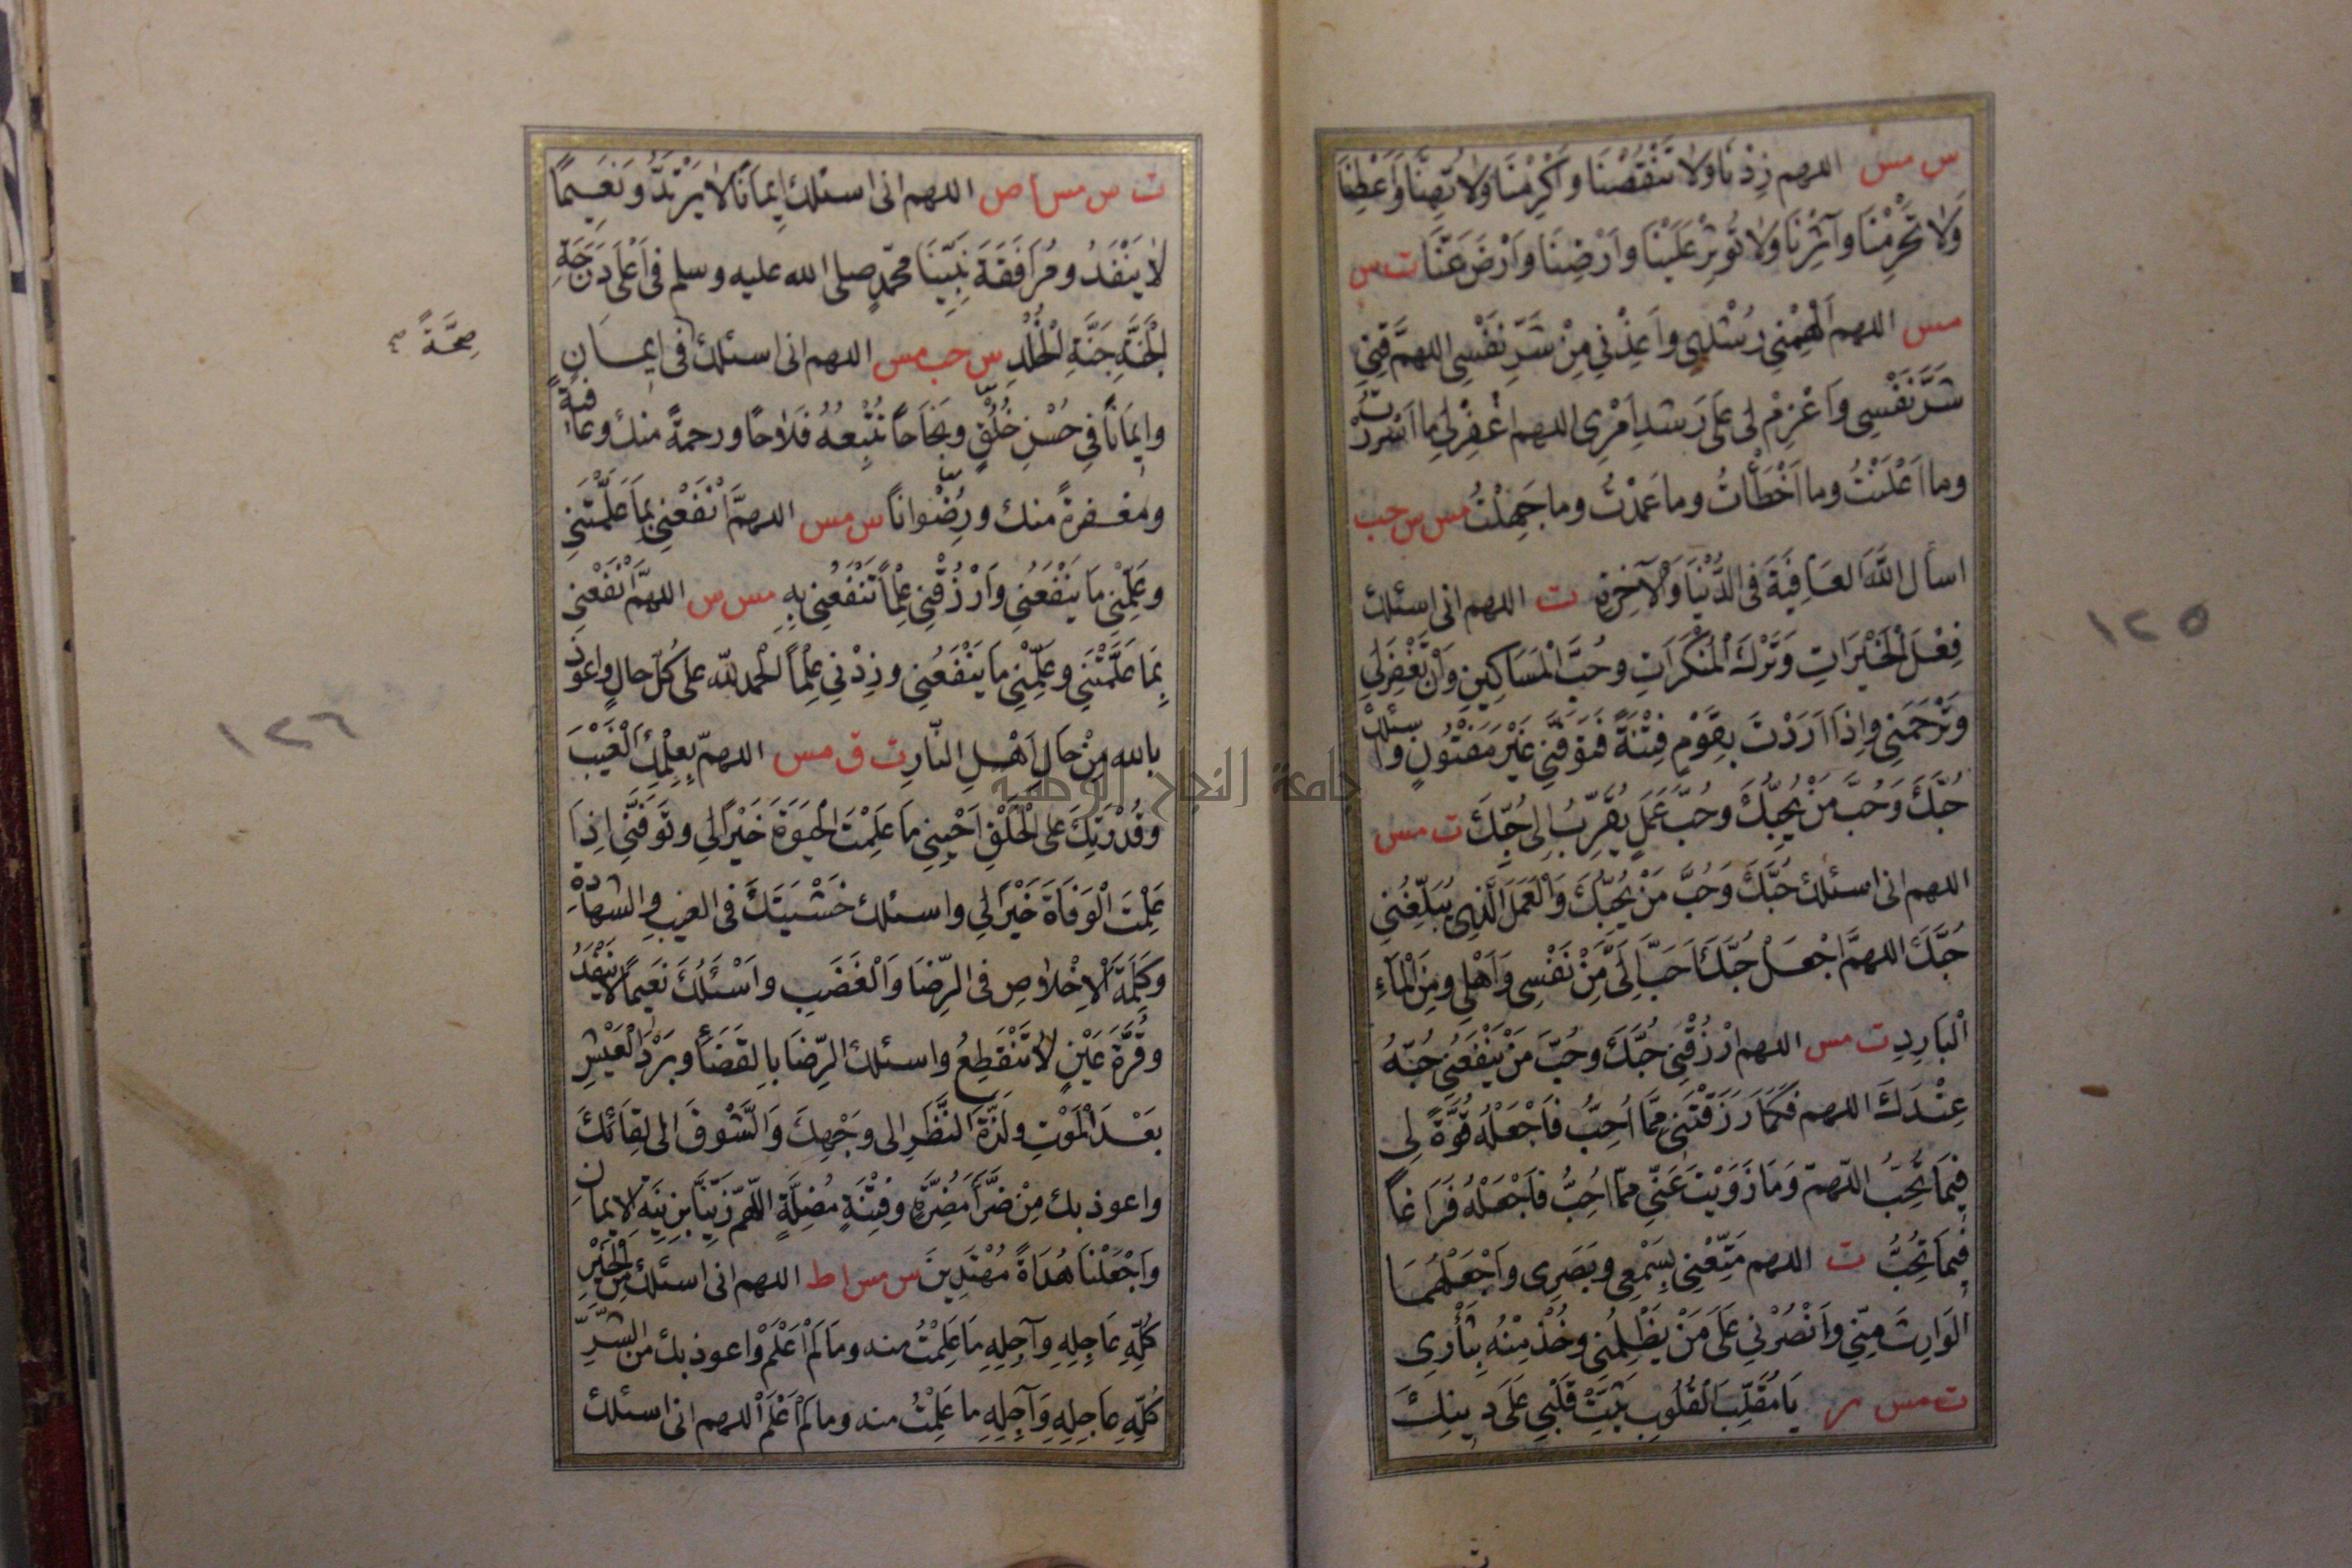 س مس اللهم زِدْنَا وَلَا تَنْقُصْنَا وَاَكْرِمْنَا وَلَا تُهِنَّا وَاَعْطِنَا
وَلَا تَحْرِمْنَا وَآثِرْنَا وَلَا تُؤْثِرْ عَلَيْنَا وَاَرْضِنَا وَارْضَ عَنَّا ت س
مس اللهم اَلْهِمْنِي رُشْدِي وَاَعِذْنِي مِنْ شَرِّ نَفْسِي اللهمَّ قِنِي
شَرَّ نَفْسِي وَاعْزِمْ لِي عَلَى رَشَدِ اَمْرِي اللهم اغْفِرْ لِي مَا اَسْرَرْتُ
وما اَعْلَنْتُ وما اَخْطَأْتُ وما عَمَدْتُ وما جَهِلْتُ مس س حب
اسأل اللَّهَ العَافِيَةَ فى الدُّنْيَا وَالْآخِرَةِ ت اللهم انى اسئلك
فِعْلَ الْخَيْرَاتِ وَتَرْكَ الْمُنْكَرَاتِ وحُبَّ الْمَسَاكِينِ وَاَنْ تَغْفِرَ لِي
وَتَرْحَمَنِي وَاِذَا اَرَدْتَ بِقَوْمٍ فِتْنَةً فَتَوَفَّنِي غَيْرَ مَفْتُونٍ واَسئلكَ
حُبَّكَ وَحُبَّ مَنْ يُحِبُّكَ وحُبَّ عَمَلٍ يُقَرِّبُ اِلى حُبِّكَ ت مس
اللهم انى اسئلك حُبَّكَ وَحُبَّ مَنْ يُحِبُّكَ وَالْعَمَلَ الَّذِي يُبَلِّغُنِي
حُبَّكَ اللهمَّ اجْعَلْ حُبَّكَ اَحَبَّ اِلَيَّ مِنْ نَفْسِي وَاَهْلِي ومِنَ الْمَاءِ
الْبَارِدِ ت مس اللهم ارْزُقْنِي حُبَّكَ وحُبَّ مَنْ يَنْفَعُنِي حُبُّهُ
عِنْدَكَ اللهم فَكَمَا رَزَقْتَنِي مِمَّا اُحِبُّ فَاجْعَلْهُ قُوَّةً لِي
فِيمَا تُحِبُّ اللّهمّ وَمَا زَوَيْتَ عَنِّي مِمّا اُحِبُّ فَاجْعَلْهُ فَرَاغاً
فِيمَا تُحِبُّ ت اللهم مَتِّعْنِي بِسَمْعِي وبَصَرِي وَاجْعَلْهُمَا
الوَارِثَ مِنِّي وَانْصُرْنِي عَلَى مَنْ يَظْلِمُنِي وخُذْ مِنْهُ بِثَأْرِي
ت مس ر يَا مُقَلِّبَ الْقُلُوبِ ثَبِّتْ قَلْبِي عَلَى دِينِكَ
١٢٥
ت س مس ا ص اللهم انى اسئلك اِيمَانًا لَا يَرْتَدُّ ونَعِيمًا
لَا يَنْفَدُ ومُرَافَقَةَ نَبِيِّنَا مُحَمَّدٍ صلى الله عليه وسلم فى اَعْلَى دَرَجَةِ
الْجَنَّةِ جَنَّةِ الْخُلْدِ س حب مس اللهم انى اسئلك فى اِيمَانٍ
وايمَاناً فِي حُسْنِ خُلُقٍ ونَجَاحاً تُتْبِعُهُ فَلَاحًا ورحمةً منك وعَافِيةً
ومغفرةً منك ورِضْوَاناً س مس اللهمَّ انْفَعْنِي بِمَا عَلَّمْتَنِي
وعَلِّمْنِي مَا يَنْفَعُنِي وَارْزُقْنِي عِلْماً تَنْفَعُنِي بِهِ مس س اللهمَّ انْفَعْنِي
بِمَا عَلَّمْتَنِي وعَلِّمْنِي مَا يَنْفَعُنِي وزِدْنِي عِلْماً الْحمد لله على كُلِّ حالٍ واعوذ
بالله مِنْ حَالِ اَهْلِ النَّارِ ت ق مس اللهمّ بِعِلْمِكَ الْغَيْبَ
وقُدْرَتِكَ عَلَى الْخَلْقِ اَحْيِنِي مَا عَلِمْتَ الْحَيٰوةَ خَيْرًا لِي وتَوَفَّنِي اِذَا
عَلِمْتَ الْوَفَاةَ خَيْرًا لِي واسئلك خَشْيَتَكَ فى الغيبِ والشهادَةِ
وكَلِمَةَ الْاِخْلَاصِ فى الرِّضَا وَالْغَضَبِ واَسْئَلُكَ نَعِيماً لَا يَنْفَدُ
وقُرَّةَ عَيْنٍ لَا تَنْقَطِعُ واسئلك الرِّضَا بِالقَضَاءِ وبَرْدَ الْعَيْشِ
بَعْدَ الْمَوْتِ ولَذَّةَ النَّظَرِ الى وَجْهِكَ وَالشَّوْقَ الى لِقَائِكَ
واعوذ بك مِنْ ضَرَّاءَ مُضِرَّةٍ وفِتْنَةٍ مُضِلَّةٍ اللّهمّ زَيِّنَّا بِزِينَةِ الايمانِ
واجْعَلْنَا هُدَاةً مُهْتَدِينَ س مس ا ط اللهم انى اسئلك مِنَ الْخَيْرِ
كُلِّهِ عَاجِلِهِ وآجِلِهِ مَا عَلِمْتُ منه ومَا لَمْ اَعْلَمْ واعوذ بك من الشَّرِّ
كُلِّهِ عَاجِلِهِ وَآجِلِهِ ما عَلِمْتُ منه وما لَمْ اَعْلَمْ اللهم انى اسئلك
صِحَّةً
١٢٦
جامعة النجاح الوطنية